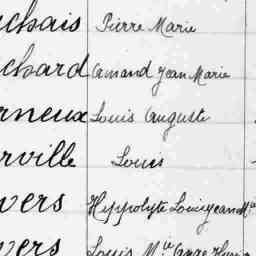 uchais Pierre Marie
chard Amand Jean Marie
rneux Louis Auguste
rville Louis
vers Hyppolyte Louis Jean M
vers Louis M.ie Ange